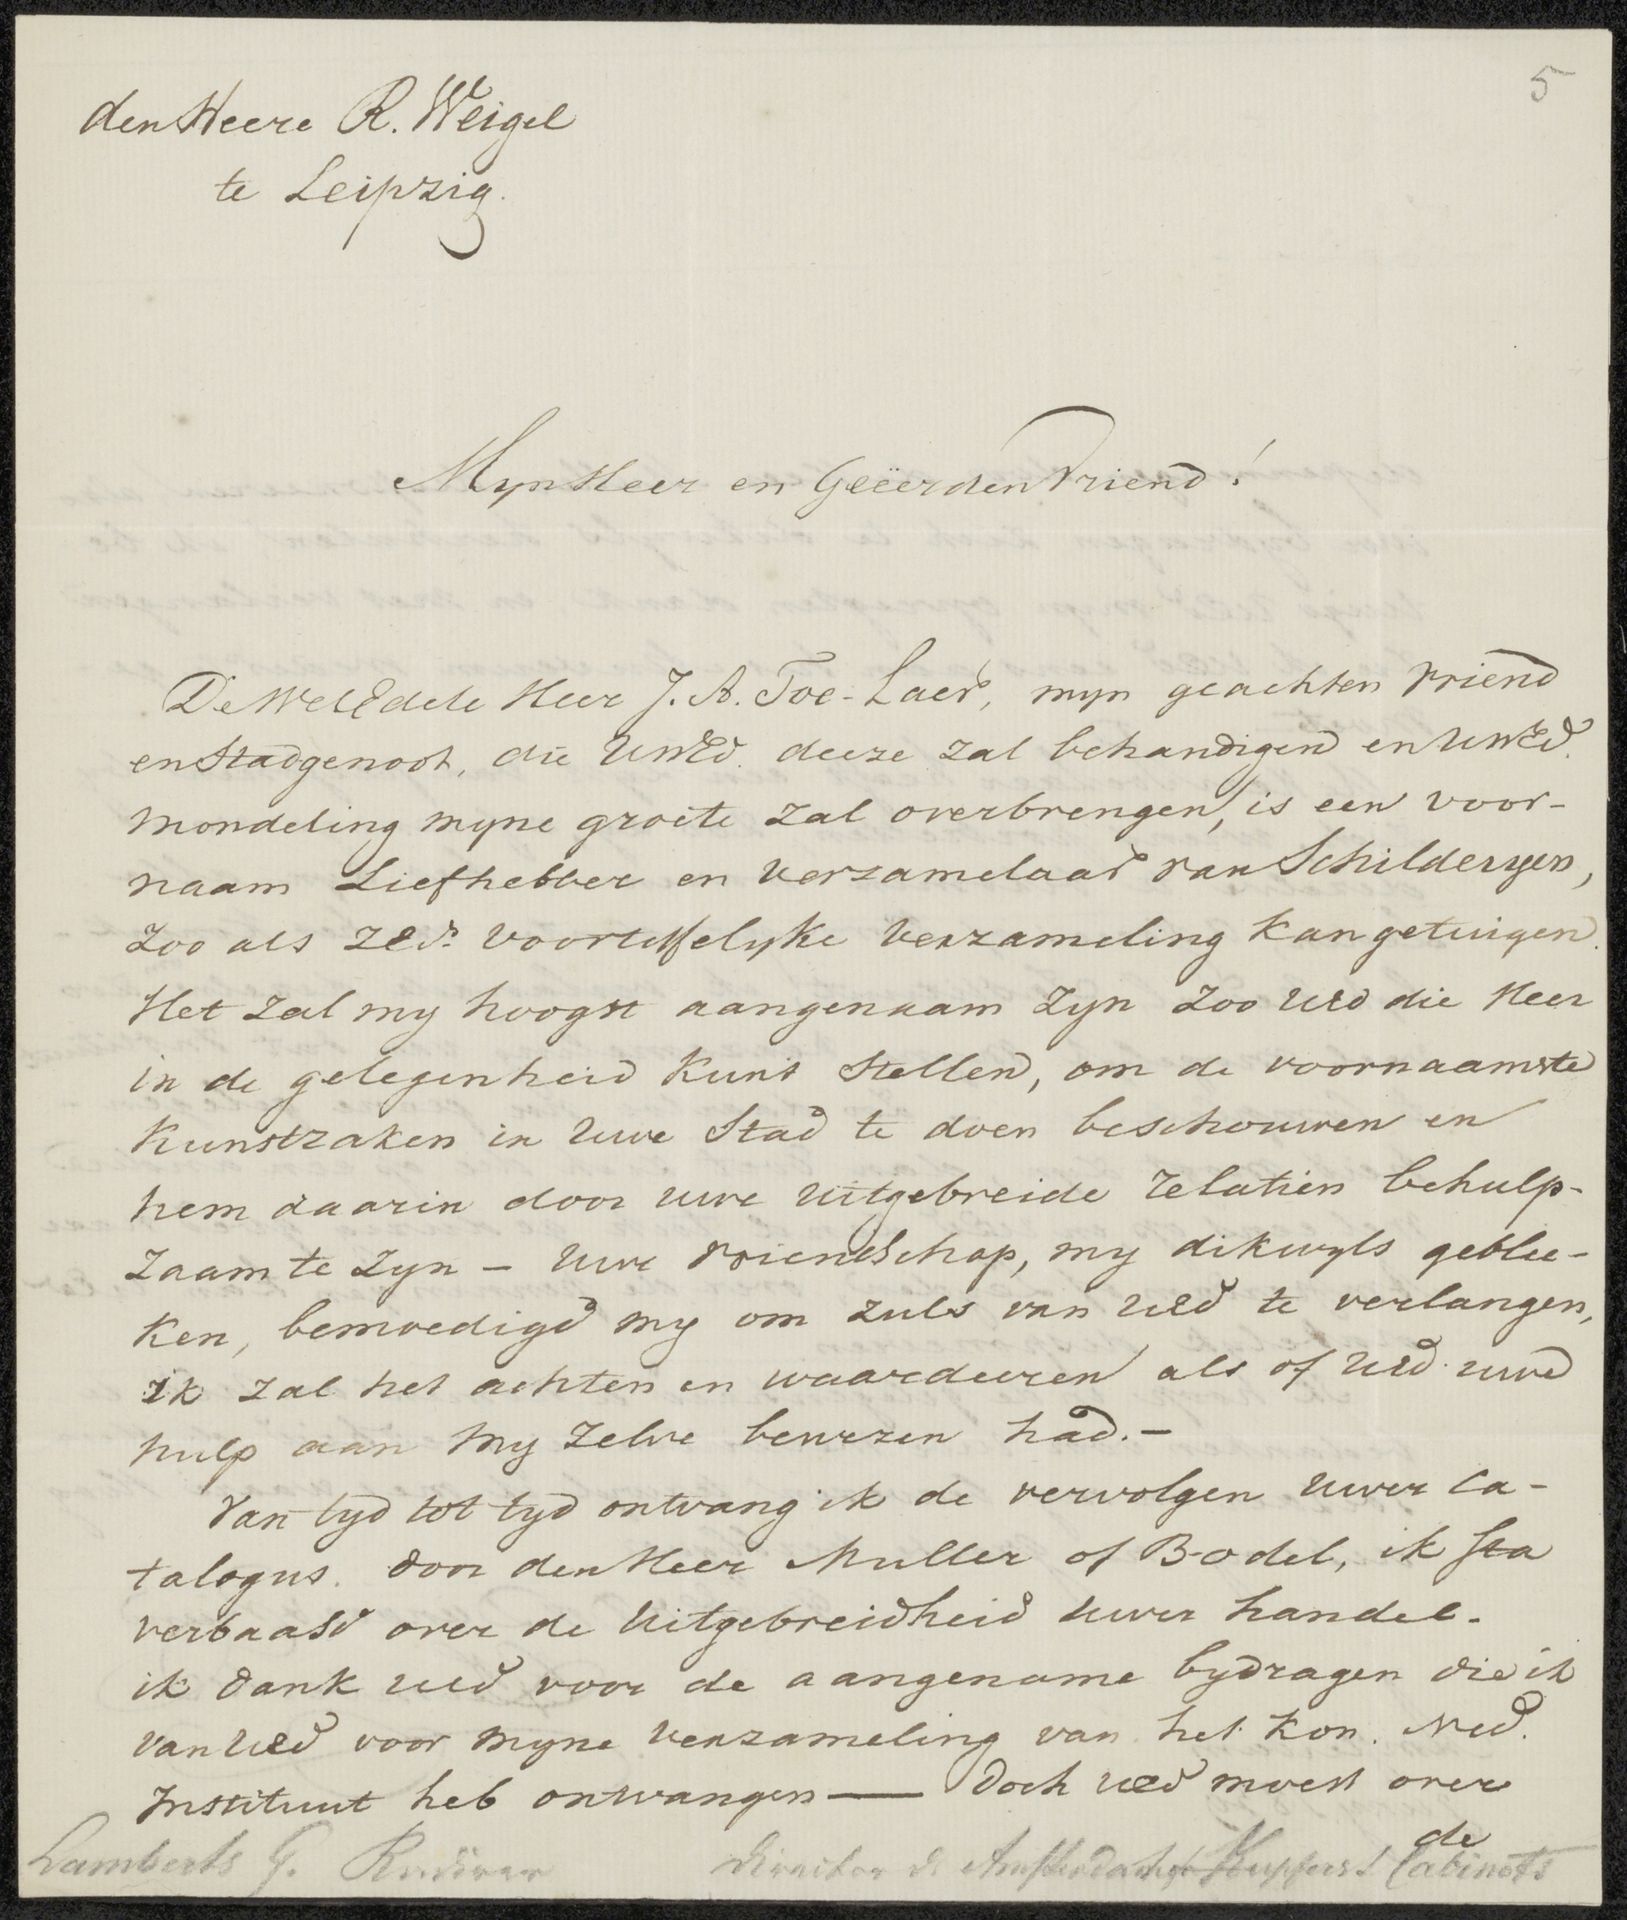 5
den Heere R. Weigel
te Leipzig.
Myn Heer en Geëerden Vriend!
De WelEdele Heer J. A. Toe-Laer, myn geachten vriend
en Stadgenoot, die UWEd. deeze zal behandigen en UWEd.
mondeling myne groete zal overbrengen, is een voor-
naam Liefhebber en verzamelaar van Schilderyen,
zoo als ZEd. voortreffelyke verzameling kan getuigen.
Het zal my hoogst aangenaam zyn zoo UEd die Heer
in de gelegenheid kunt stellen, om de voornaamste
Kunstzaken in Uwe Stad te doen beschouwen en
hem daarin door uwe uitgebreide relatien behulp-
zaam te zyn — Uwe vriendschap, my dikwyls geblee-
ken, bemoedigd my om zulks van UEd te verlangen,
ik zal het achten en waardeeren als of UEd. uwe
hulp aan my zelve bewezen had.—
Van tyd tot tyd ontvang ik de vervolgen uwer Ca-
talogus. door den Heer Muller of Bodel, ik sta
verbaasd over de uitgebreidheid uwer handel.
ik dank UEd voor de aangename bydragen die ik
van UEd voor myne verzameling van het Kon. Ned.
Instituut heb ontvangen — Doch UEd moest over
de
Lamberts G.
Director d. Amsterdamer Kupferst Cabinets